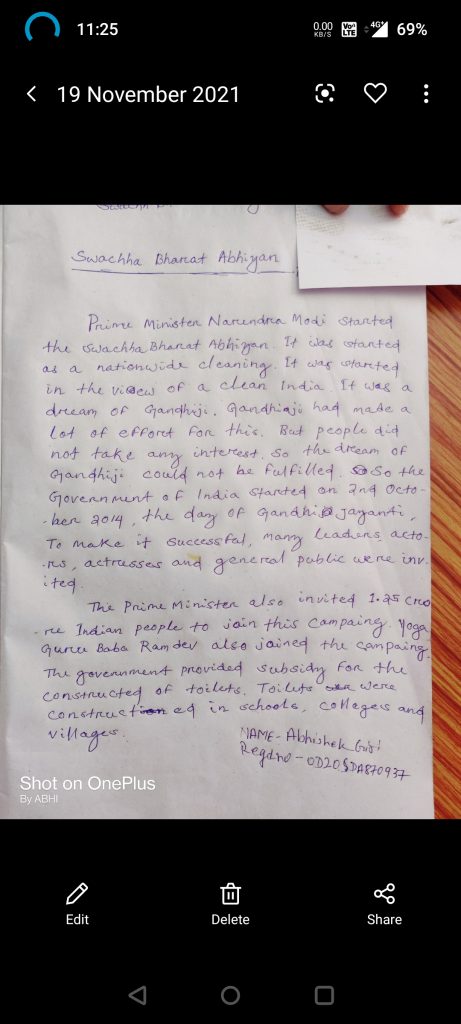 11:25
0.00 KB/S
Vo LTE
4G
69%
19 November 2021
Swachha Bharat Abhiyan
Prime Minister Narendra Modi started
the Swachha Bharat Abhiyan. It was started
as a nationwide cleaning. It was started
in the view of a clean India. It was a
dream of Gandhiji. Gandhiji had made a
lot of effort for this. But people did
not take any interest. So the dream of
Gandhiji could not be fulfilled. So the
Government of India started on 2nd Octo-
-ber 2014, the day of Gandhi jayanti.
To make it successful, many leaders, acto-
-rs, actresses and general public were inv-
ited.
The Prime Minister also invited 1.25 cro
-re Indian people to join this campaing. Yoga
Guru Baba Ramdev also joined the campaing.
The government provided subsidy for the
constructed of toilets. Toilets were
constructed in schools, colleges and
villages.
NAME - Abhishek Giri
Regdno -
Shot on OnePlus
By ABHI
Edit
Delete
Share